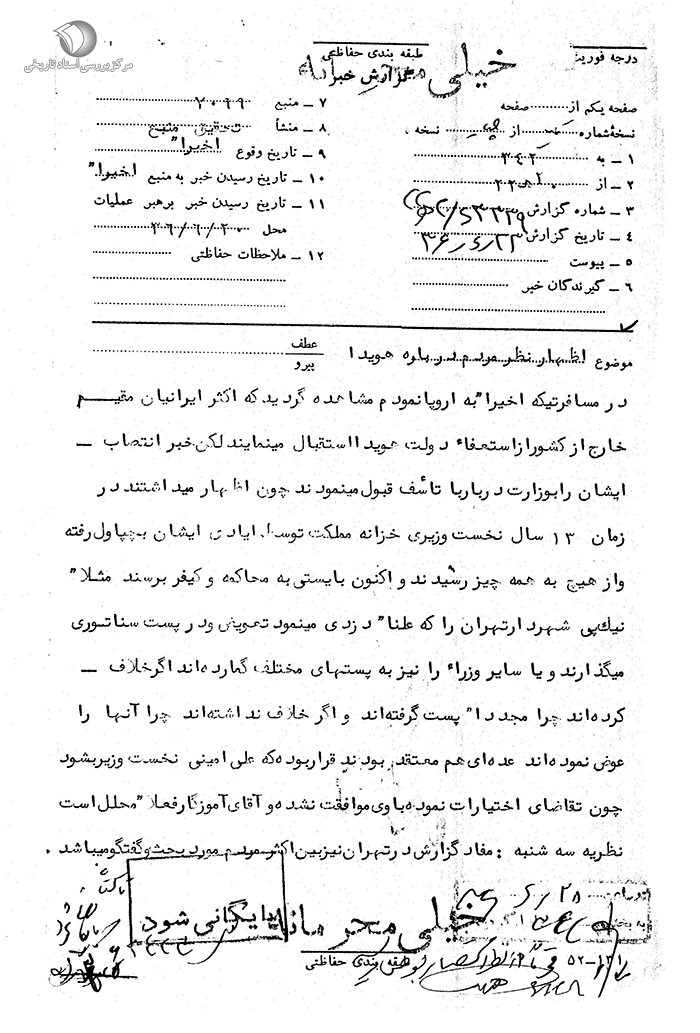 مرکز بررسی اسناد تاریخی
درجه فوریت
طبقه بندی حفاظتی
خیلی محرمانه
گزارش خبر
صفحه یکم از صفحه
نسخه شماره از نسخه
۱ – به ۳۴۲
۲ – از
۳ – شماره گزارش
۴ – تاریخ گزارش ۳۶/۶/۲۳
۵ – پیوست
۶ – گیرندگان خبر
۷ – منبع ۷۰۹۹
۸ – منشأ تحقیق منبع
۹ – تاریخ وقوع اخیرا"
۱۰ – تاریخ رسیدن خبر به منبع اخیرا"
۱۱ – تاریخ رسیدن خبر برهبر عملیات
محل ۳۶/۶/۲۰
۱۲ – ملاحظات حفاظتی
موضوع اظهار نظر مردم درباره هویدا
عطف
پیرو
در مسافرتیکه اخیرا" به اروپا نمودم مشاهده گردید که اکثر ایرانیان مقیـــم
خارج از کشور از استعفاء دولت هویدا استقبال مینمایند لکن خبر انتصاب –
ایشان را بوزارت دربار با تأسف قبول مینمودند چون اظهار میداشتند در
زمان ۱۳ سال نخست وزیری خزانه مملکت توسط ایادی ایشان بچپاول رفته
و از هیچ به همه چیز رسیدند و اکنون بایستی به محاکمه و کیفر برسند مثلا"
نیک‌پی شهردار تهران را که علنا" دزدی مینمود تعویض و در پست سناتوری
میگذارند و یا سایر وزراء را نیز به پستهای مختلف گمارده‌اند اگر خلاف –
کرده‌اند چرا مجددا" پست گرفته‌اند و اگر خلاف نداشته‌اند چرا آنها را
عوض نموده‌اند عده‌ای هم معتقد بودند قرار بوده که علی امینی نخست وزیر بشود
چون تقاضای اختیارات نموده با وی موافقت نشده و آقای آموزگار فعلا" محلل است
نظریه سه شنبه : مفاد گزارش در تهران نیز بین اکثر مردم مورد بحث و گفتگو میباشد .
بایگانی شود
خیلی محرمانه
طبقه بندی حفاظتی